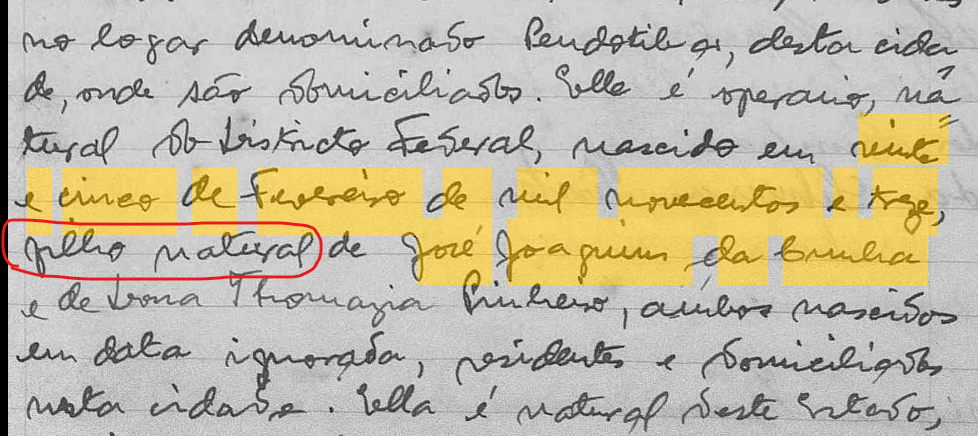 no logar denominado Pendotiba, desta cida
de, onde são domiciliados. Elle é operario, na
tural do Districto Federal, nascido em vinte
e cinco de Fevereiro de mil novecentos e treze,
filho natural de José Joaquim da Cunha
e de Dona Thomazia Pinheiro, ambos nascidos
em data ignorada, residentes e domiciliados
nesta cidade. Ella é natural deste Estado,